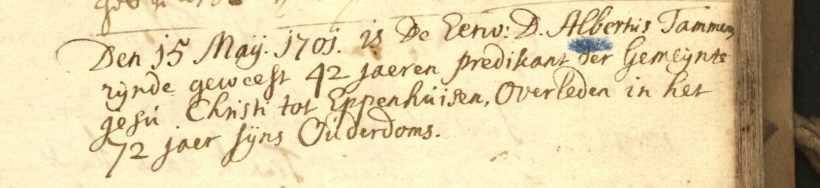 Den 15 Maij. 1701. is De Eerw: D. Albertus Tammen,
zijnde geweest 42 jaeren predikant der Gemeijnte
Jesu Christi tot Eppenhuisen, Overleden in het
72 jaer sijns Ouderdoms.